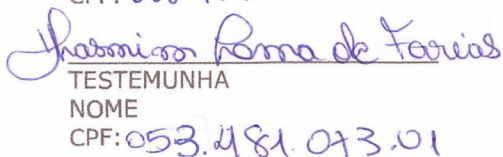 CPF:
Jhasmim Roma de Farias
TESTEMUNHA
NOME
CPF: 053.481.073.01